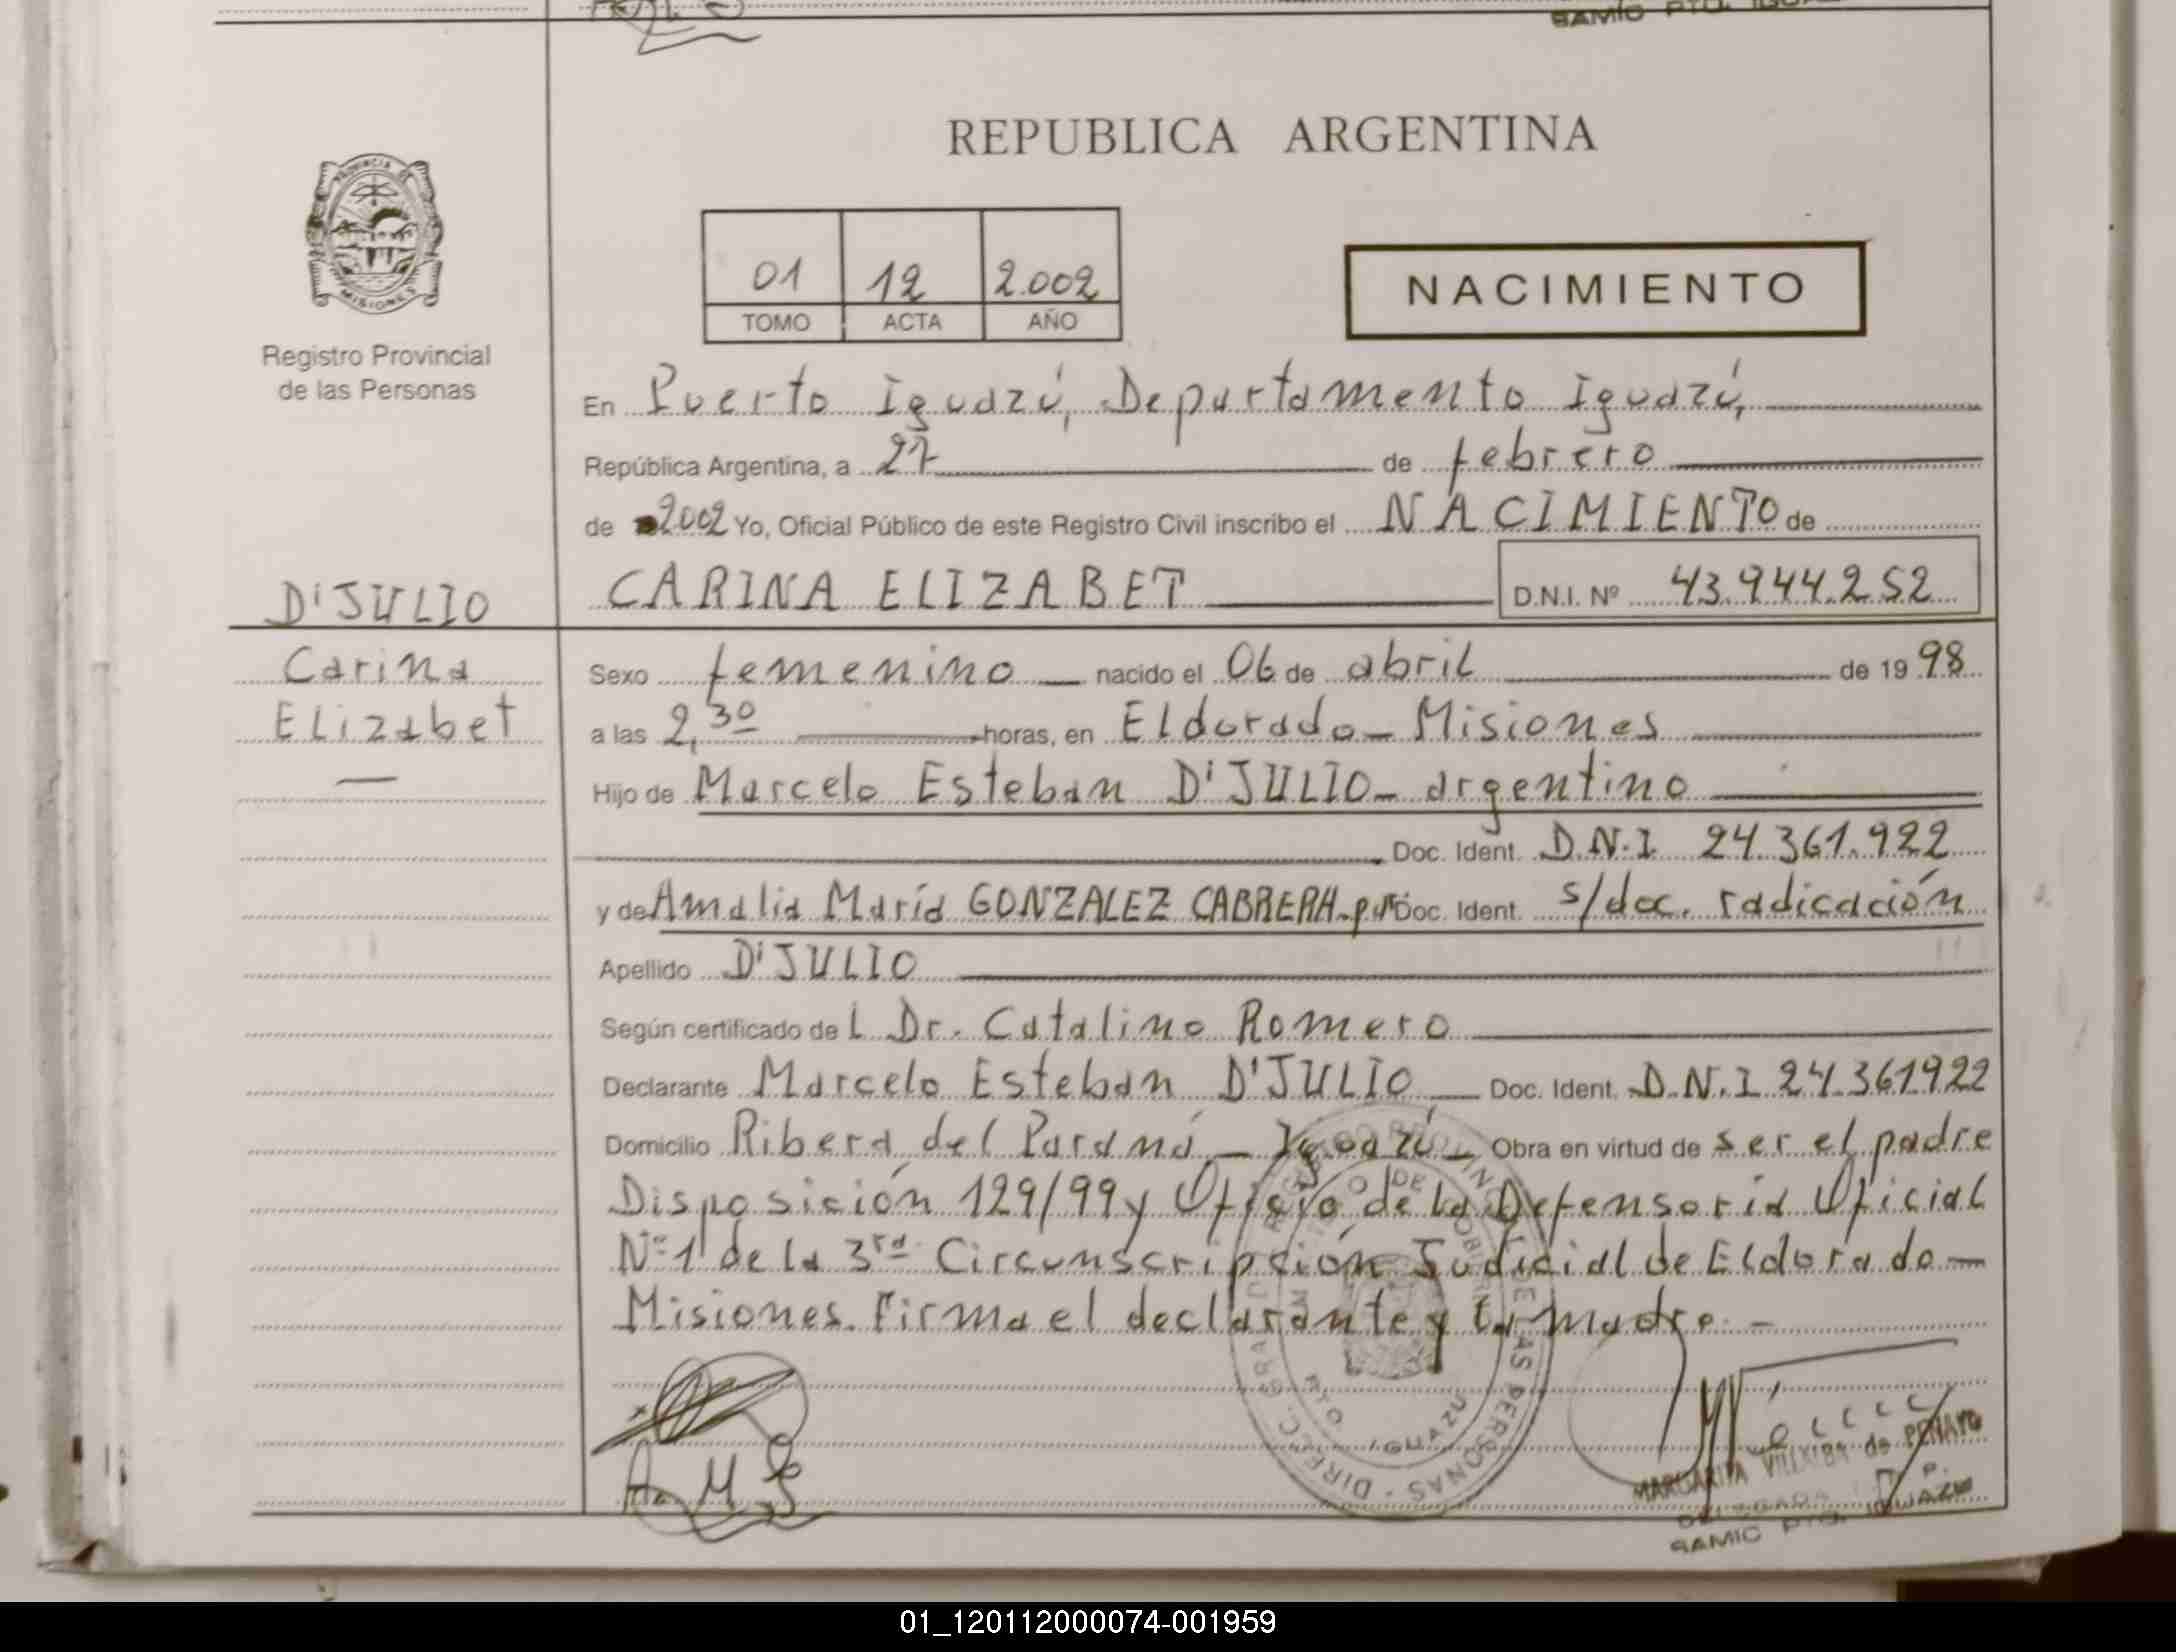 SAMIC PTO.
REPUBLICA ARGENTINA
PROVINCIA DE
MISIONES
01 12 2.002
TOMO ACTA AÑO
NACIMIENTO
Registro Provincial
de las Personas
En Puerto Iguazú, Departamento Iguazú,
República Argentina, a 27 de febrero
de 2002 Yo, Oficial Público de este Registro Civil inscribo el NACIMIENTO de
D'JULIO
CARINA ELIZABET D.N.I. Nº 43.944.252
Carina
Elizabet
Sexo femenino nacido el 06 de abril de 19 98
a las 2,30 horas, en Eldorado - Misiones
Hijo de Marcelo Esteban D'JULIO - argentino
Doc. Ident. D.N.I 24.361.922
y de Amalia María GONZALEZ CABRERA - Doc. Ident. s/doc. radicación
Apellido D'JULIO
Según certificado de l Dr. Catalino Romero
Declarante Marcelo Esteban D'JULIO Doc. Ident. D.N.I 24.361922
Domicilio Ribera del Paraná - Iguazú - Obra en virtud de ser el padre
Disposición 129/99 y Oficio de la Defensoría Oficial
Nº 1 de la 3ra Circunscripción Judicial de Eldorado -
Misiones. Firma el declarante y la madre. -
A. M. G
PTO IGUAZU
MARGARITA VILLALBA de PENAYO
DELEGADA
SAMIC PTO. IGUAZU
01_120112000074-001959